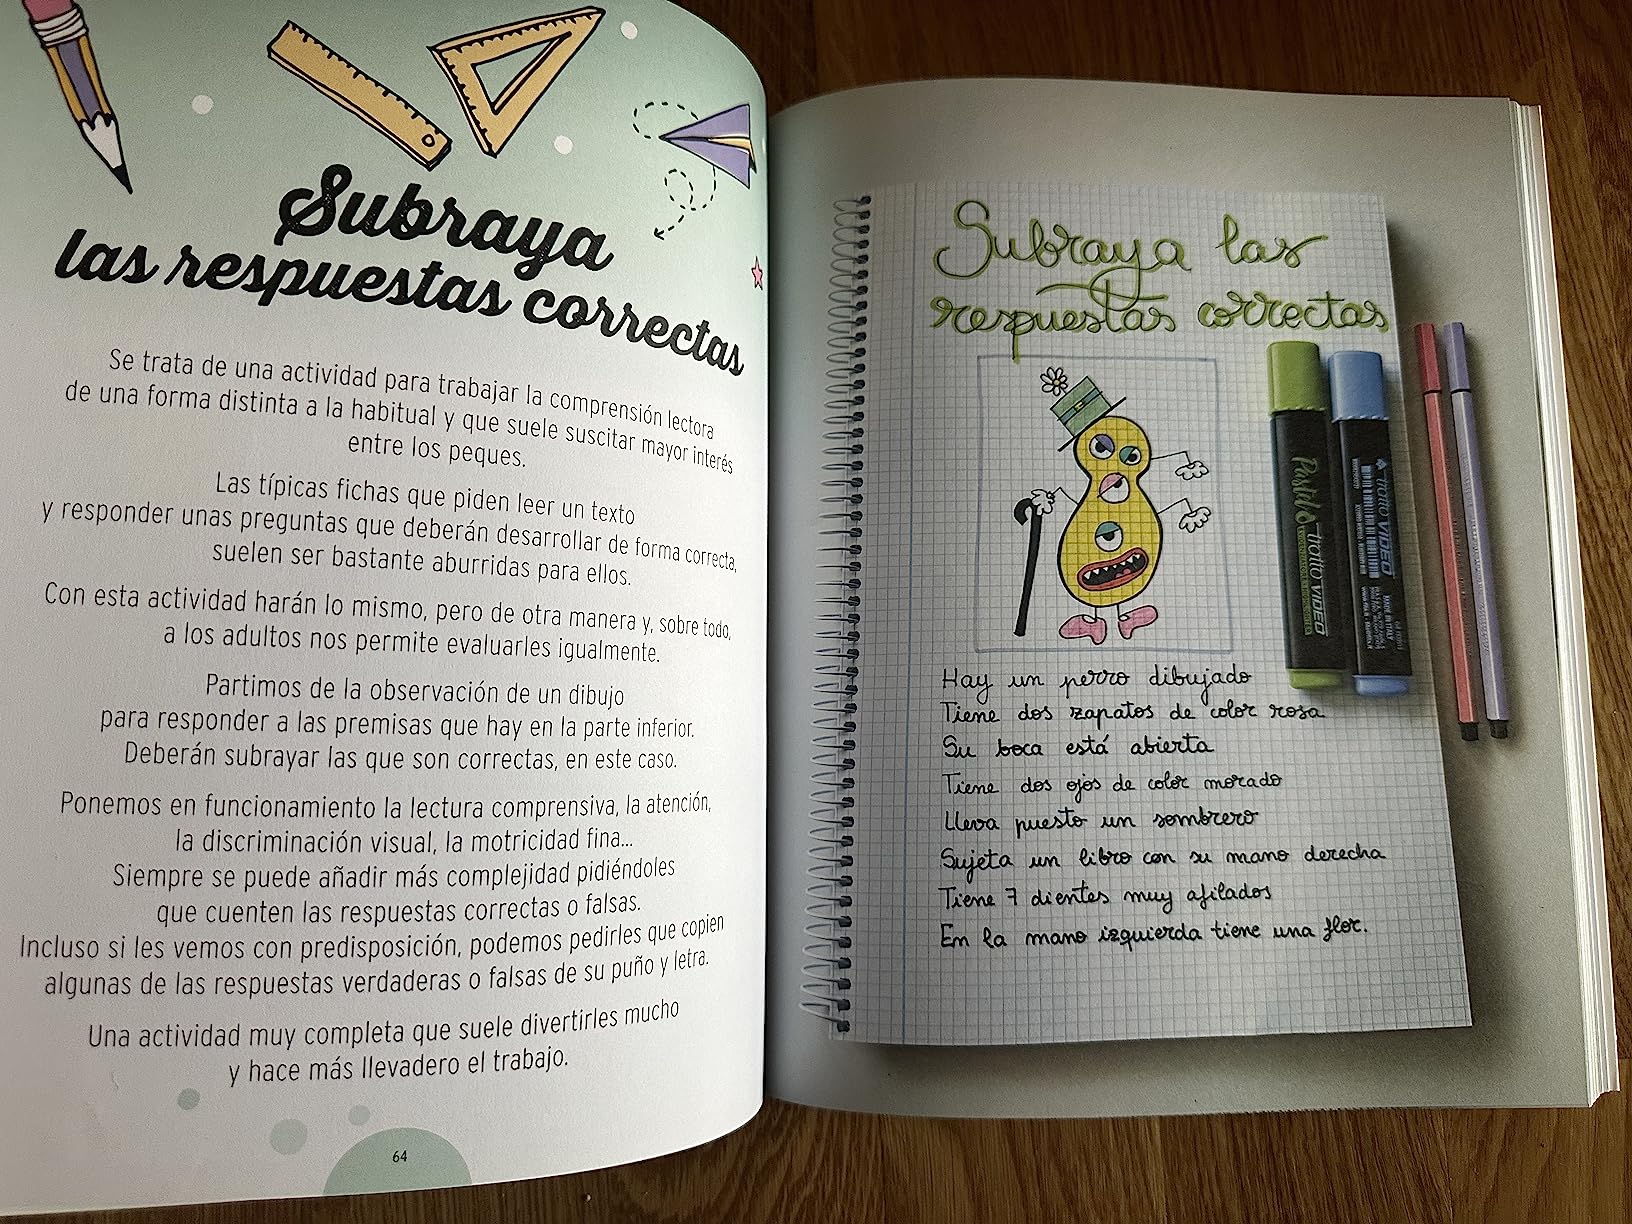 Subraya
las respuestas correctas
Se trata de una actividad para trabajar la comprensión lectora
de una forma distinta a la habitual y que suele suscitar mayor interés
entre los peques.
Las típicas fichas que piden leer un texto
y responder unas preguntas que deberán desarrollar de forma correcta,
suelen ser bastante aburridas para ellos.
Con esta actividad harán lo mismo, pero de otra manera y, sobre todo,
a los adultos nos permite evaluarles igualmente.
Partimos de la observación de un dibujo
para responder a las premisas que hay en la parte inferior.
Deberán subrayar las que son correctas, en este caso.
Ponemos en funcionamiento la lectura comprensiva, la atención,
la discriminación visual, la motricidad fina...
Siempre se puede añadir más complejidad pidiéndoles
que cuenten las respuestas correctas o falsas.
Incluso si les vemos con predisposición, podemos pedirles que copien
algunas de las respuestas verdaderas o falsas de su puño y letra.
Una actividad muy completa que suele divertirles mucho
y hace más llevadero el trabajo.
64
Subraya las
respuestas correctas
Pastel
tratto VIDEO
tratto VIDEO
MADE IN ITALY
Hay un perro dibujado
Tiene dos zapatos de color rosa
Su boca está abierta
Tiene dos ojos de color morado
Lleva puesto un sombrero
Sujeta un libro con su mano derecha
Tiene 7 dientes muy afilados
En la mano izquierda tiene una flor.